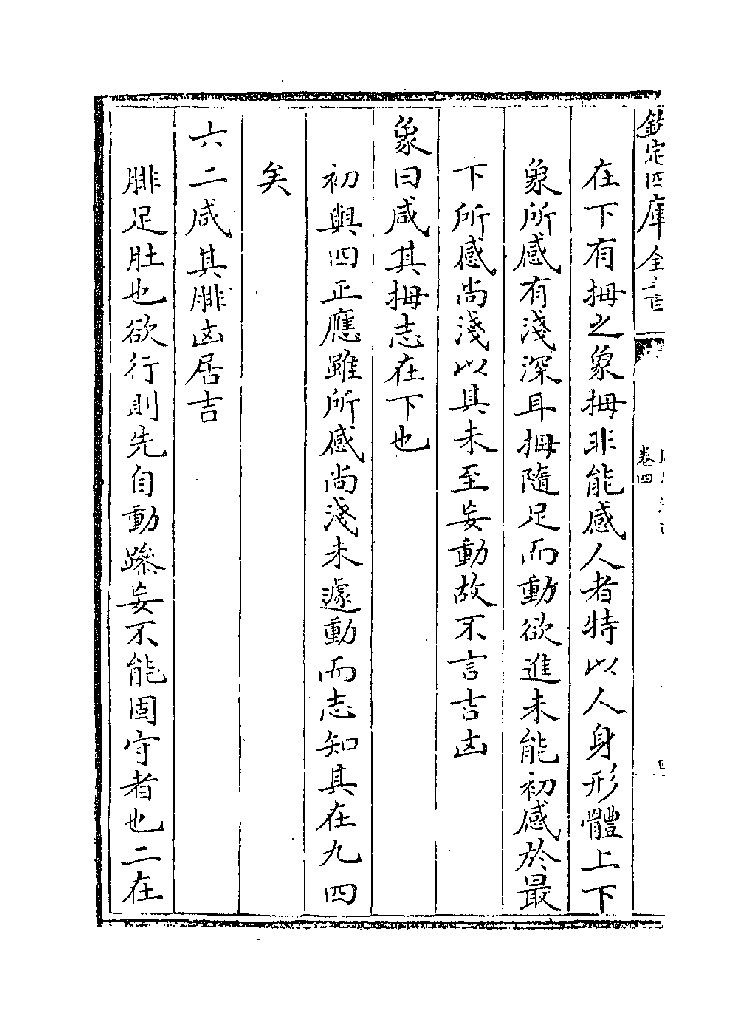 欽定四庫全書
卷四
在下有拇之象拇非能感人者特以人身形體上下
象所感有淺深耳拇隨足而動欲進未能初感於最
下所感尚淺以其未至妄動故不言吉凶
象曰咸其拇志在下也
初與四正應雖所感尚淺未遽動而志知其在九四
矣
六二咸其腓凶居吉
腓足肚也欲行則先自動躁妄不能固守者也二在